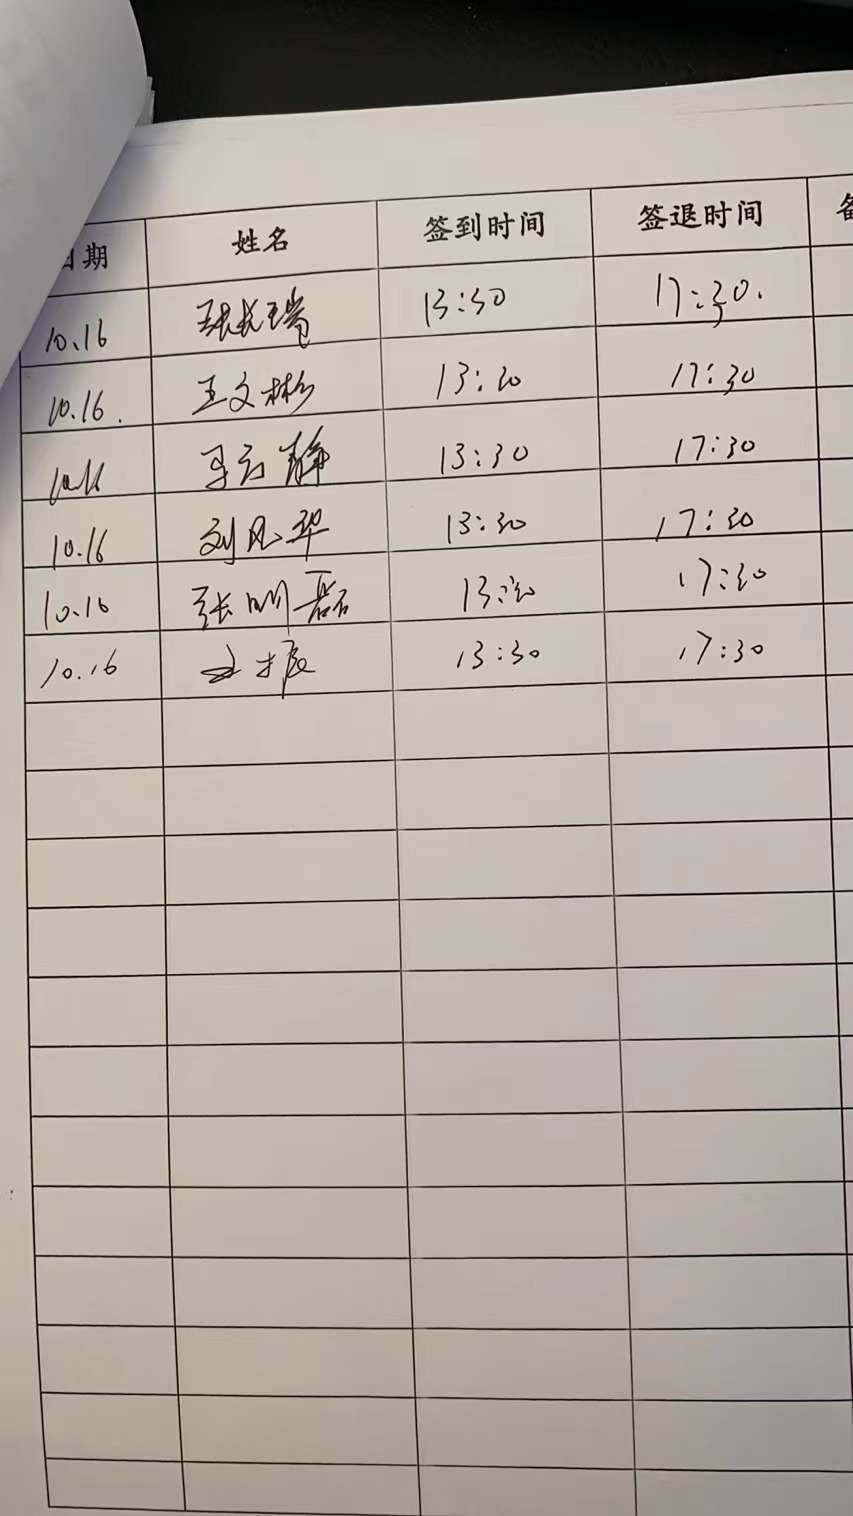 日期 姓名 签到时间 签退时间
10.16 张长瑞 13:30 17:30.
10.16. 王文彬 13:30 17:30
10.16 静 13:30 17:30
10.16 刘凤华 13:30 17:30
10.16 张明磊 13:30 17:30
10.16 振 13:30 17:30